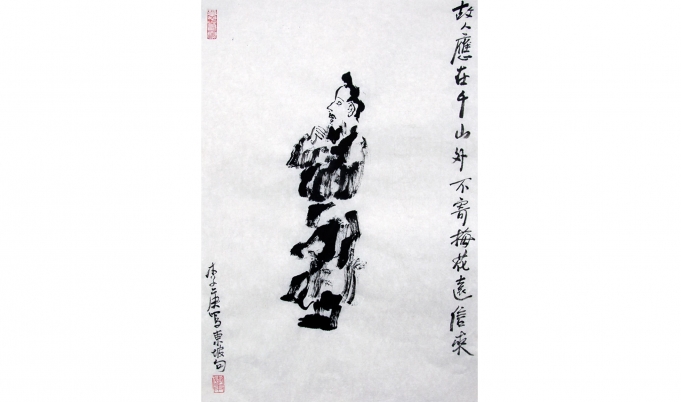 故人應在千山外不寄梅花遠信來
李写東坡句